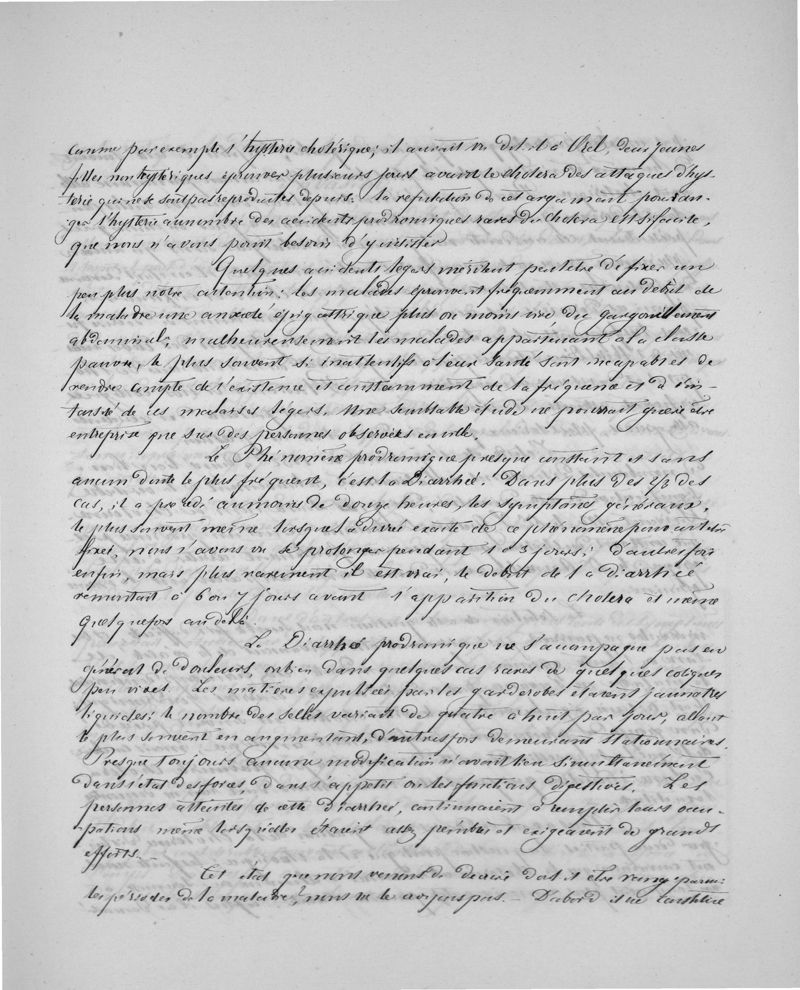 comme par exemple l'hysterie cholérique; il aurait vu dit-il à Orel, deux jeunes
filles non hystériques éprouver plusieurs jours avant le cholera des attaques d'hys-
terie qui ne se sont pas reproduites depuis. La refutation de cet argument pour ran-
ger l'hysterie au nombre des accidents prodromiques rares du cholera est si facile,
que nous n'avons point besoin d'y insister.
Quelques accidents legers méritent peut être de fixer un
peu plus notre attention: les malades éprouvent fréquemment au début de
la maladie une anxiété épigastrique plus ou moins vive du gargouillement
abdominal; malheureusement les malades appartenant à la classe
pauvre, le plus souvent si inattentifs à leur santé sont incapables de
rendre compte de l'existence et constamment de la fréquence et d'in-
tensité de ces malaises légers. Une semblable étude ne pourrait guère être
entreprise que sur des personnes observées en ville.
Le Phénomène prodromique presque constant et sans
aucun doute le plus fréquent, c'est la Diarrhée. Dans plus des 2/3 des
cas, il a précédé au moins de douze heures, les symptômes généraux,
le plus souvent même lorsque la durée exacte de ce phénomène pouvait être
fixée, nous l'avons vu se prolonger pendant 1 à 3 jours; d'autres fois
enfin, mais plus rarement il est vrai, le debut de la diarrhée
remontait à 6 ou 7 jours avant l'apparition du cholera et même
quelquefois au delà.
La Diarrhée prodromique ne s'accompagne pas en
général de douleurs, ou bien dans quelques cas rares de quelques coliques
peu vives. Les matières expulsées par les garderobes étaient jaunâtres
liquides; le nombre des selles variait de quatre à huit par jour, allant
le plus souvent en augmentant, d'autres fois demeurant stationnaires.
Presque toujours aucune modification n'avait lieu simultanément
dans l'état des forces, dans l'appetit ou les fonctions digestives. Les
personnes atteintes de cette diarrhée, continuaient à remplir leurs occu-
pations même lorsqu'elles étaient assez penibles et exigeaient de grands
efforts.
Cet état que nous venons de decrire doit il être rangé parmi
les périodes de la maladie? nous ne le croyons pas. — D'abord il ne constitue